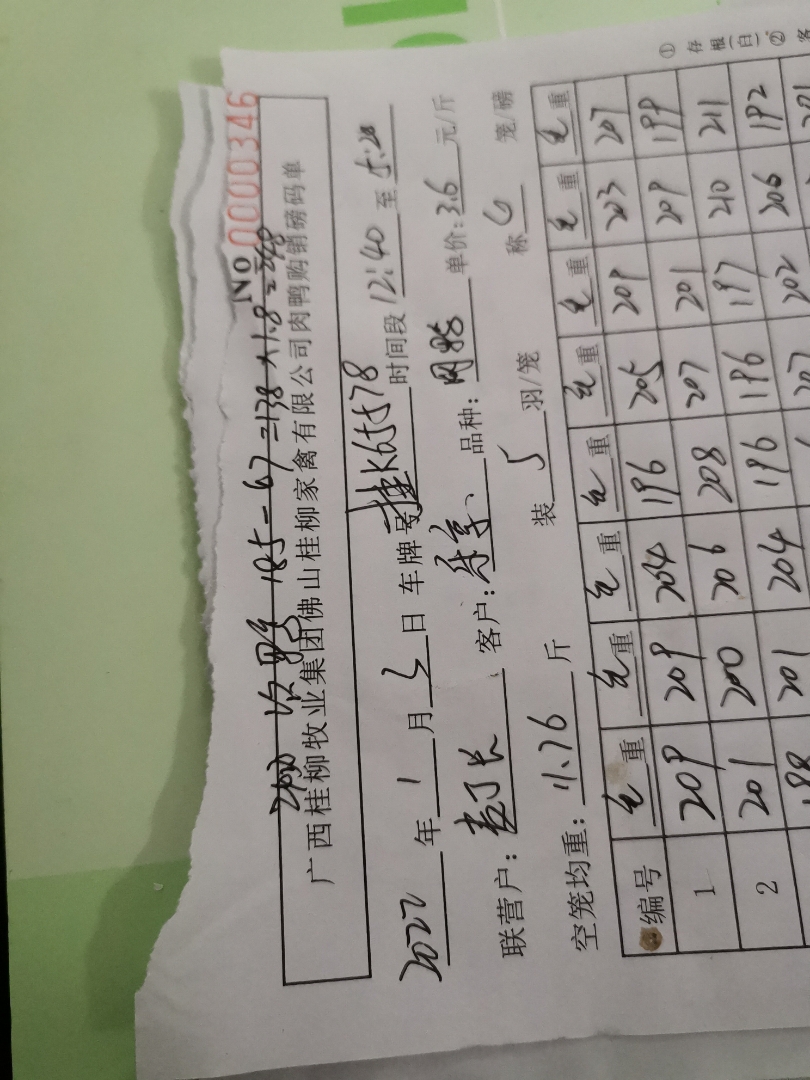 № 0000346
广西桂柳牧业集团佛山桂柳家禽有限公司肉鸭购销磅码单
2022年1月3日 车牌号 时间段 12:40 至 5:20
联营户: 客户: 品种: 单价: 3.6 元/斤
空笼均重: 11.76 斤 装 5 羽/笼 称 6 笼/磅
编号 毛重 毛重 毛重 毛重 毛重 毛重 毛重 毛重
1 209 209 204 196 205 209 203 207
2 201 200 206 208 207 201 209 199
188 201 204 196 196 197 210 211
207 202 206 192
201
① 存根(白) ② 客